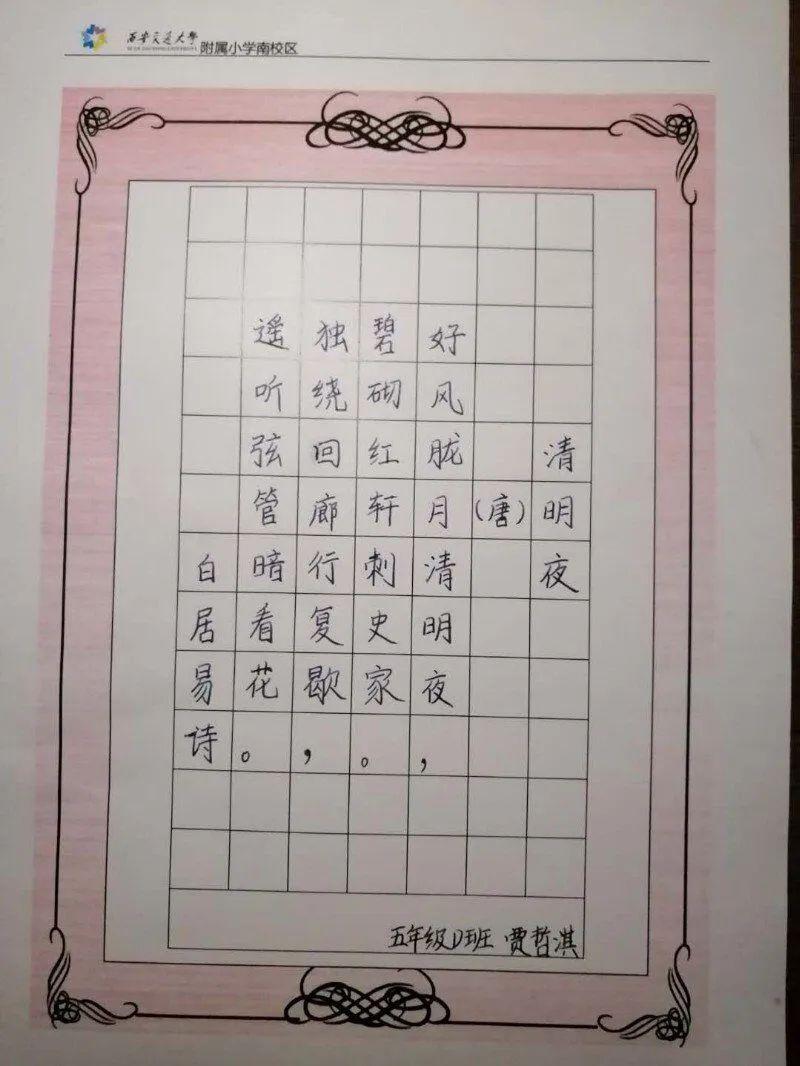 西安交通大學
附属小学南校区
清明夜
(唐)
好风胧月清明夜，
碧砌红轩刺史家。
独绕回廊行复歇，
遥听弦管暗看花。
白居易诗
五年级D班 贾哲淇